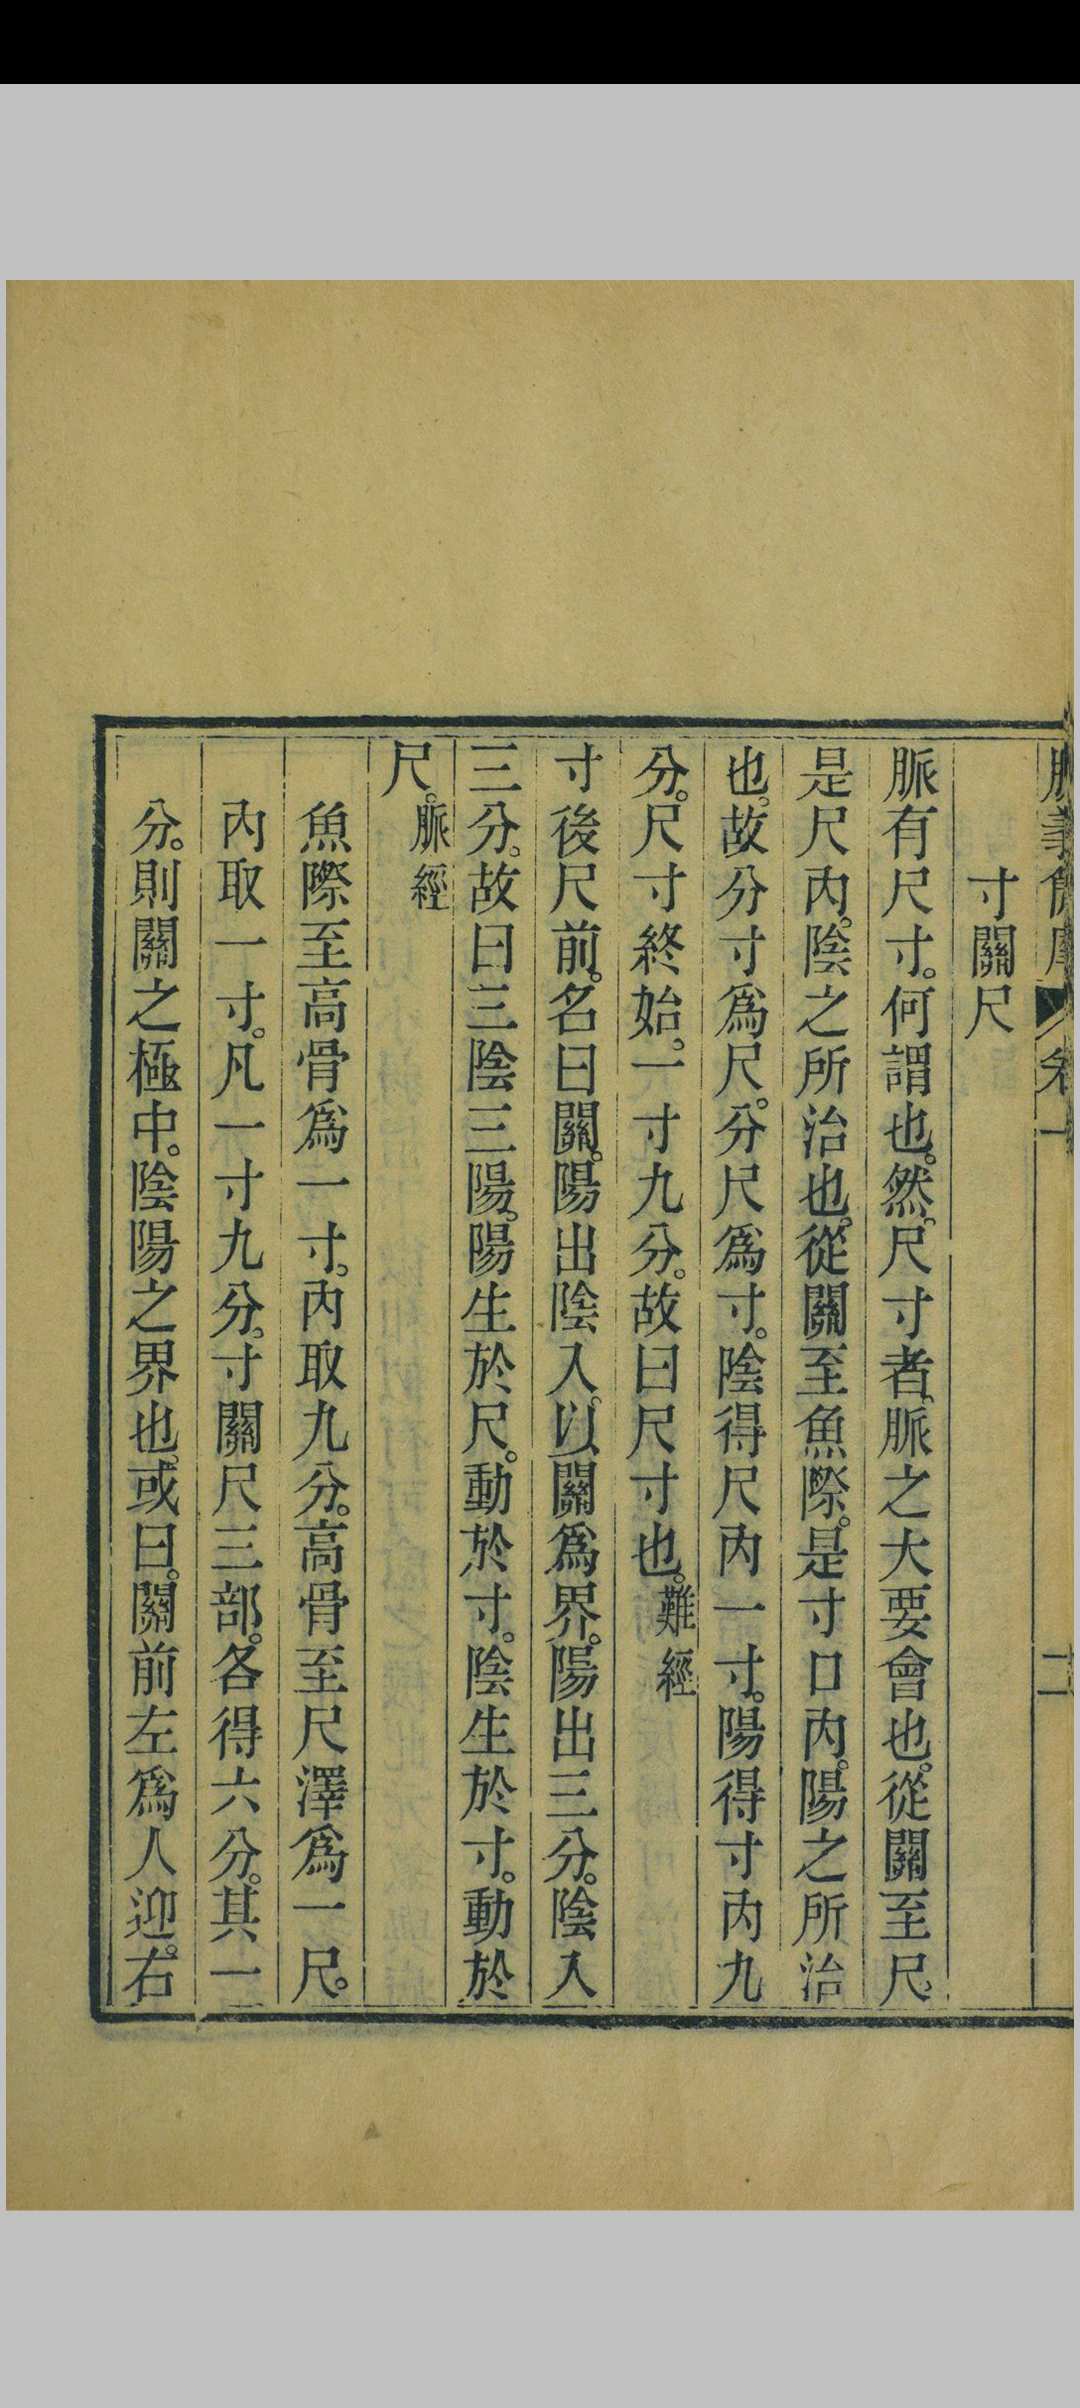 卷一 二
寸關尺
脈有尺寸。何謂也。然。尺寸者、脈之大要會也。從關至尺、
是尺內。陰之所治也。從關至魚際。是寸口內。陽之所治
也。故分寸爲尺。分尺爲寸。陰得尺內一寸。陽得寸內九
分。尺寸終始。一寸九分。故曰尺寸也。難經
寸後尺前。名曰關。陽出陰入。以關爲界。陽出三分。陰入
三分。故曰三陰三陽。陽生於尺。動於寸。陰生於寸。動於
尺。脈經
魚際至高骨爲一寸。內取九分。高骨至尺澤爲一尺。
內取一寸。凡一寸九分。寸關尺三部。各得六分。其一
分。則關之極中。陰陽之界也。或曰。關前左爲人迎。右